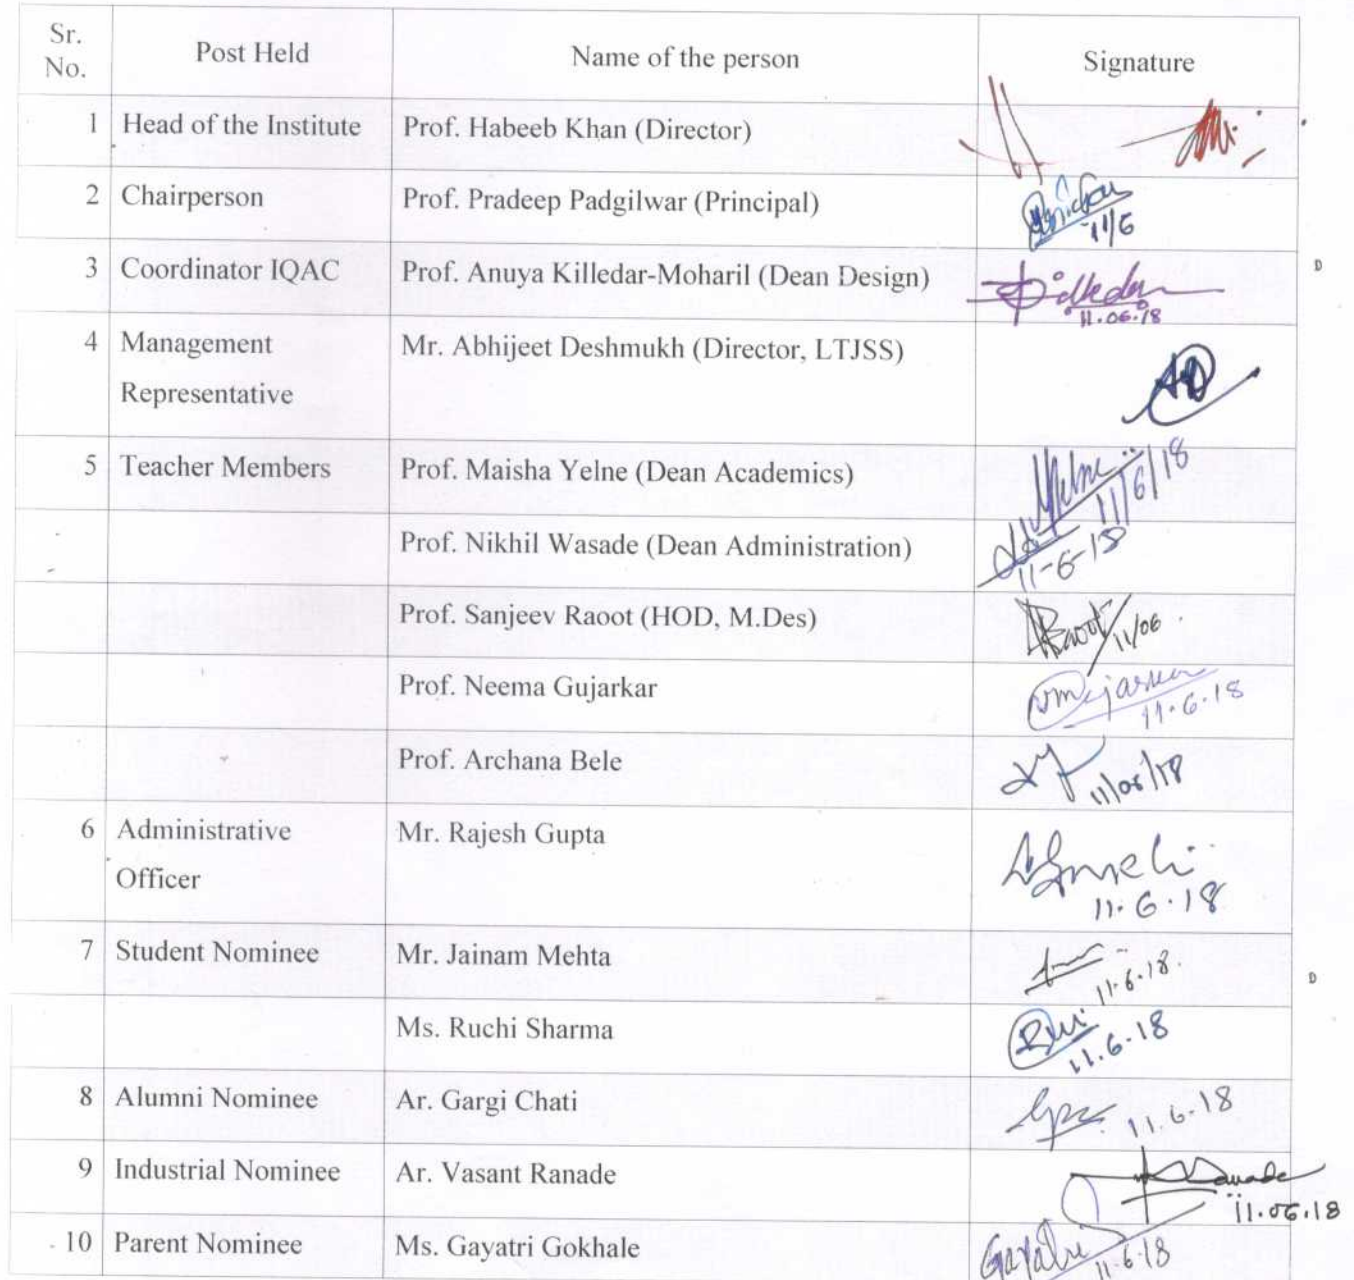 Sr. No. Post Held Name of the person Signature
1 Head of the Institute Prof. Habeeb Khan (Director)
2 Chairperson Prof. Pradeep Padgilwar (Principal)
11/6
3 Coordinator IQAC Prof. Anuya Killedar-Moharil (Dean Design) Killedar
11.06.18
4 Management Mr. Abhijeet Deshmukh (Director, LTJSS) AD
Representative
5 Teacher Members Prof. Maisha Yelne (Dean Academics) Yelne 11/6/18
Prof. Nikhil Wasade (Dean Administration)
11-6-18
Prof. Sanjeev Raoot (HOD, M.Des) Raoot 11/06
Prof. Neema Gujarkar
11.6.18
Prof. Archana Bele
6 Administrative Mr. Rajesh Gupta
Officer
11.6.18
7 Student Nominee Mr. Jainam Mehta
11.6.18.
Ms. Ruchi Sharma
11.6.18
8 Alumni Nominee Ar. Gargi Chati 11.6.18
9 Industrial Nominee Ar. Vasant Ranade Ranade
11.06.18
10 Parent Nominee Ms. Gayatri Gokhale Gayatri
11.6.18